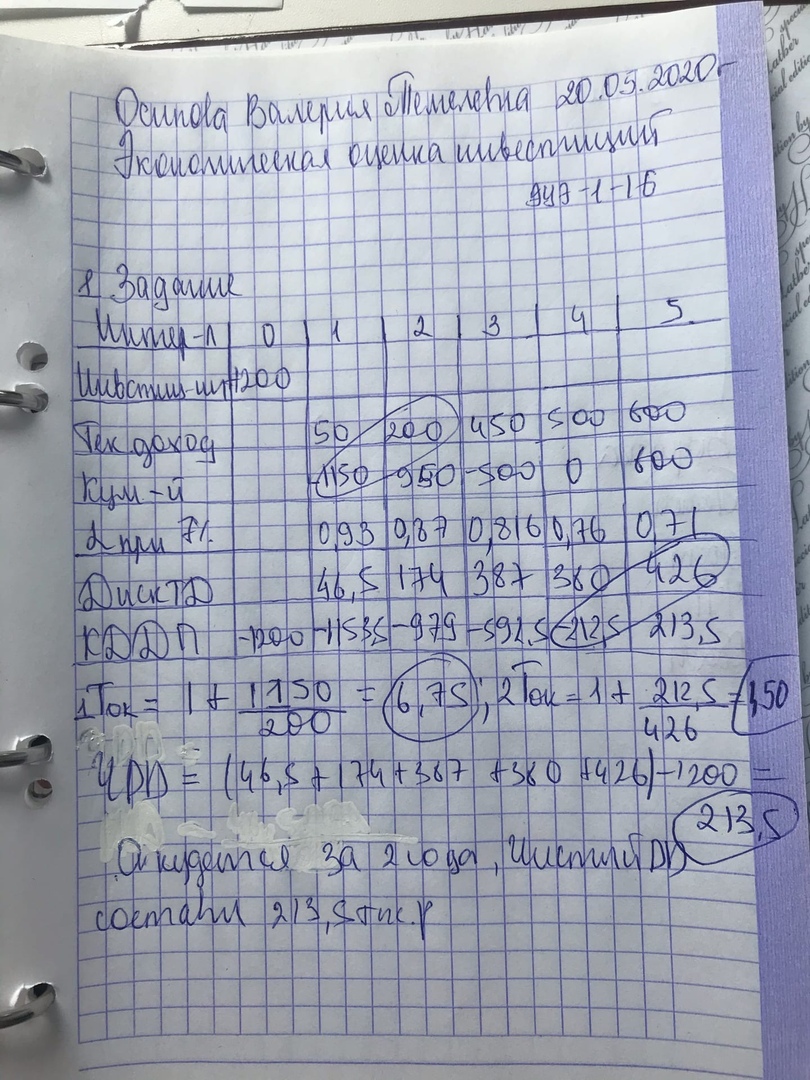 Осипова Валерия Темелевна 20.05.2020г
Экономическая оценка инвестиций
-1-16
8 Задание
Интер-л 0 1 2 3 4 5
-1200
Тек доход 50 200 450 500 600
Кум-й -1150 -950 -500 0 600
α при 7% 0,93 0,87 0,816 0,76 0,71
ДисктД 46,5 174 387 380 426
КДДП -1200 -1153,5 -979 -592,5 -212,5 213,5
1Ток = 1 + 1150/200 = 6,75; 2Ток = 1 + 212,5/426 = 1,50
ЧДД = (46,5 + 174 + 387 + 380 + 426) - 1200 =
213,5
Окупется за 2 года, Чистый ДД
составил 213,5 тыс.р